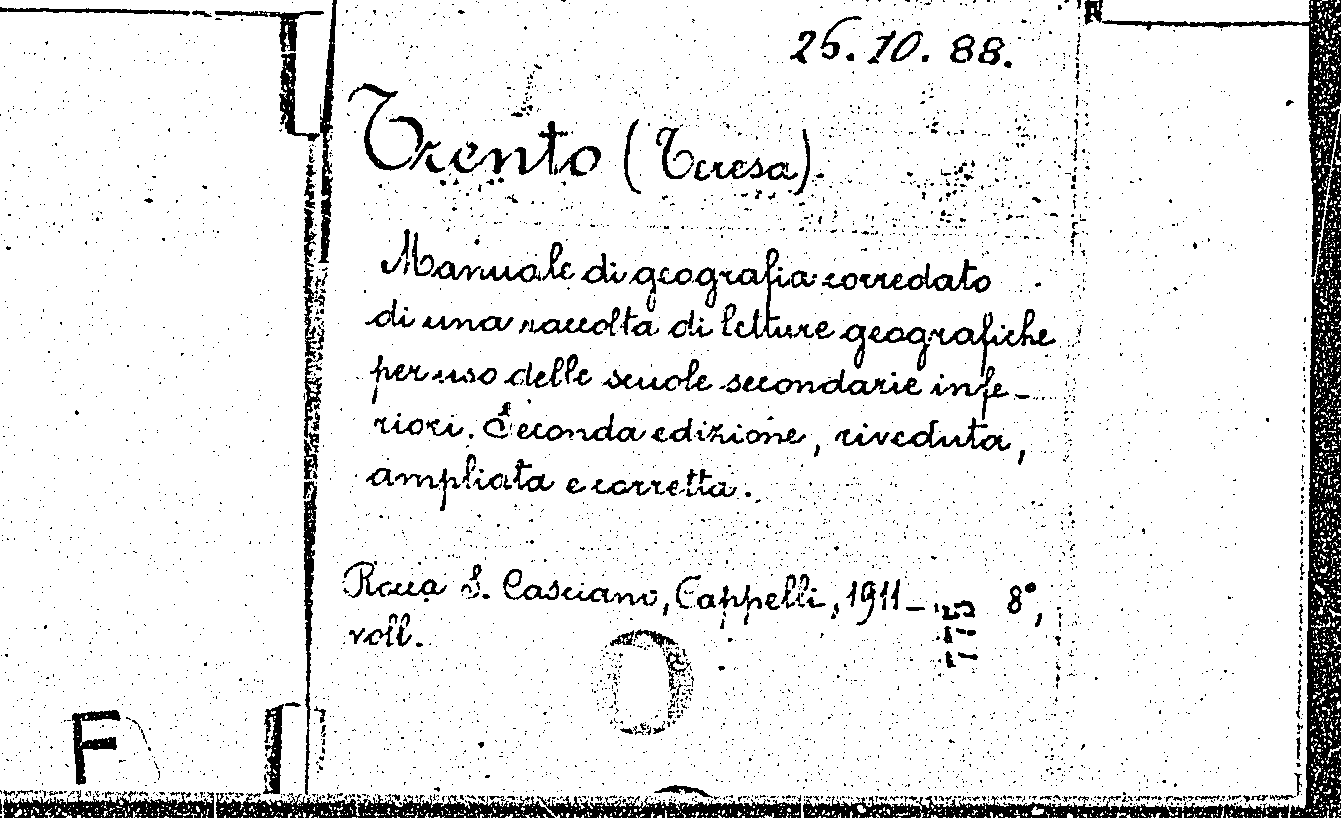 25.10.88.
Trento (Teresa).
Manuale di geografia corredato
di una raccolta di letture geografiche
per uso delle scuole secondarie infe-
riori. Seconda edizione, riveduta,
ampliata e corretta.
Rocca S. Casciano, Cappelli, 1911- 8°,
voll.
775
F